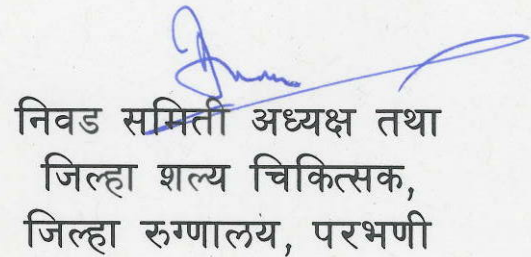 निवड समिती अध्यक्ष तथा
जिल्हा शल्य चिकित्सक,
जिल्हा रुग्णालय, परभणी